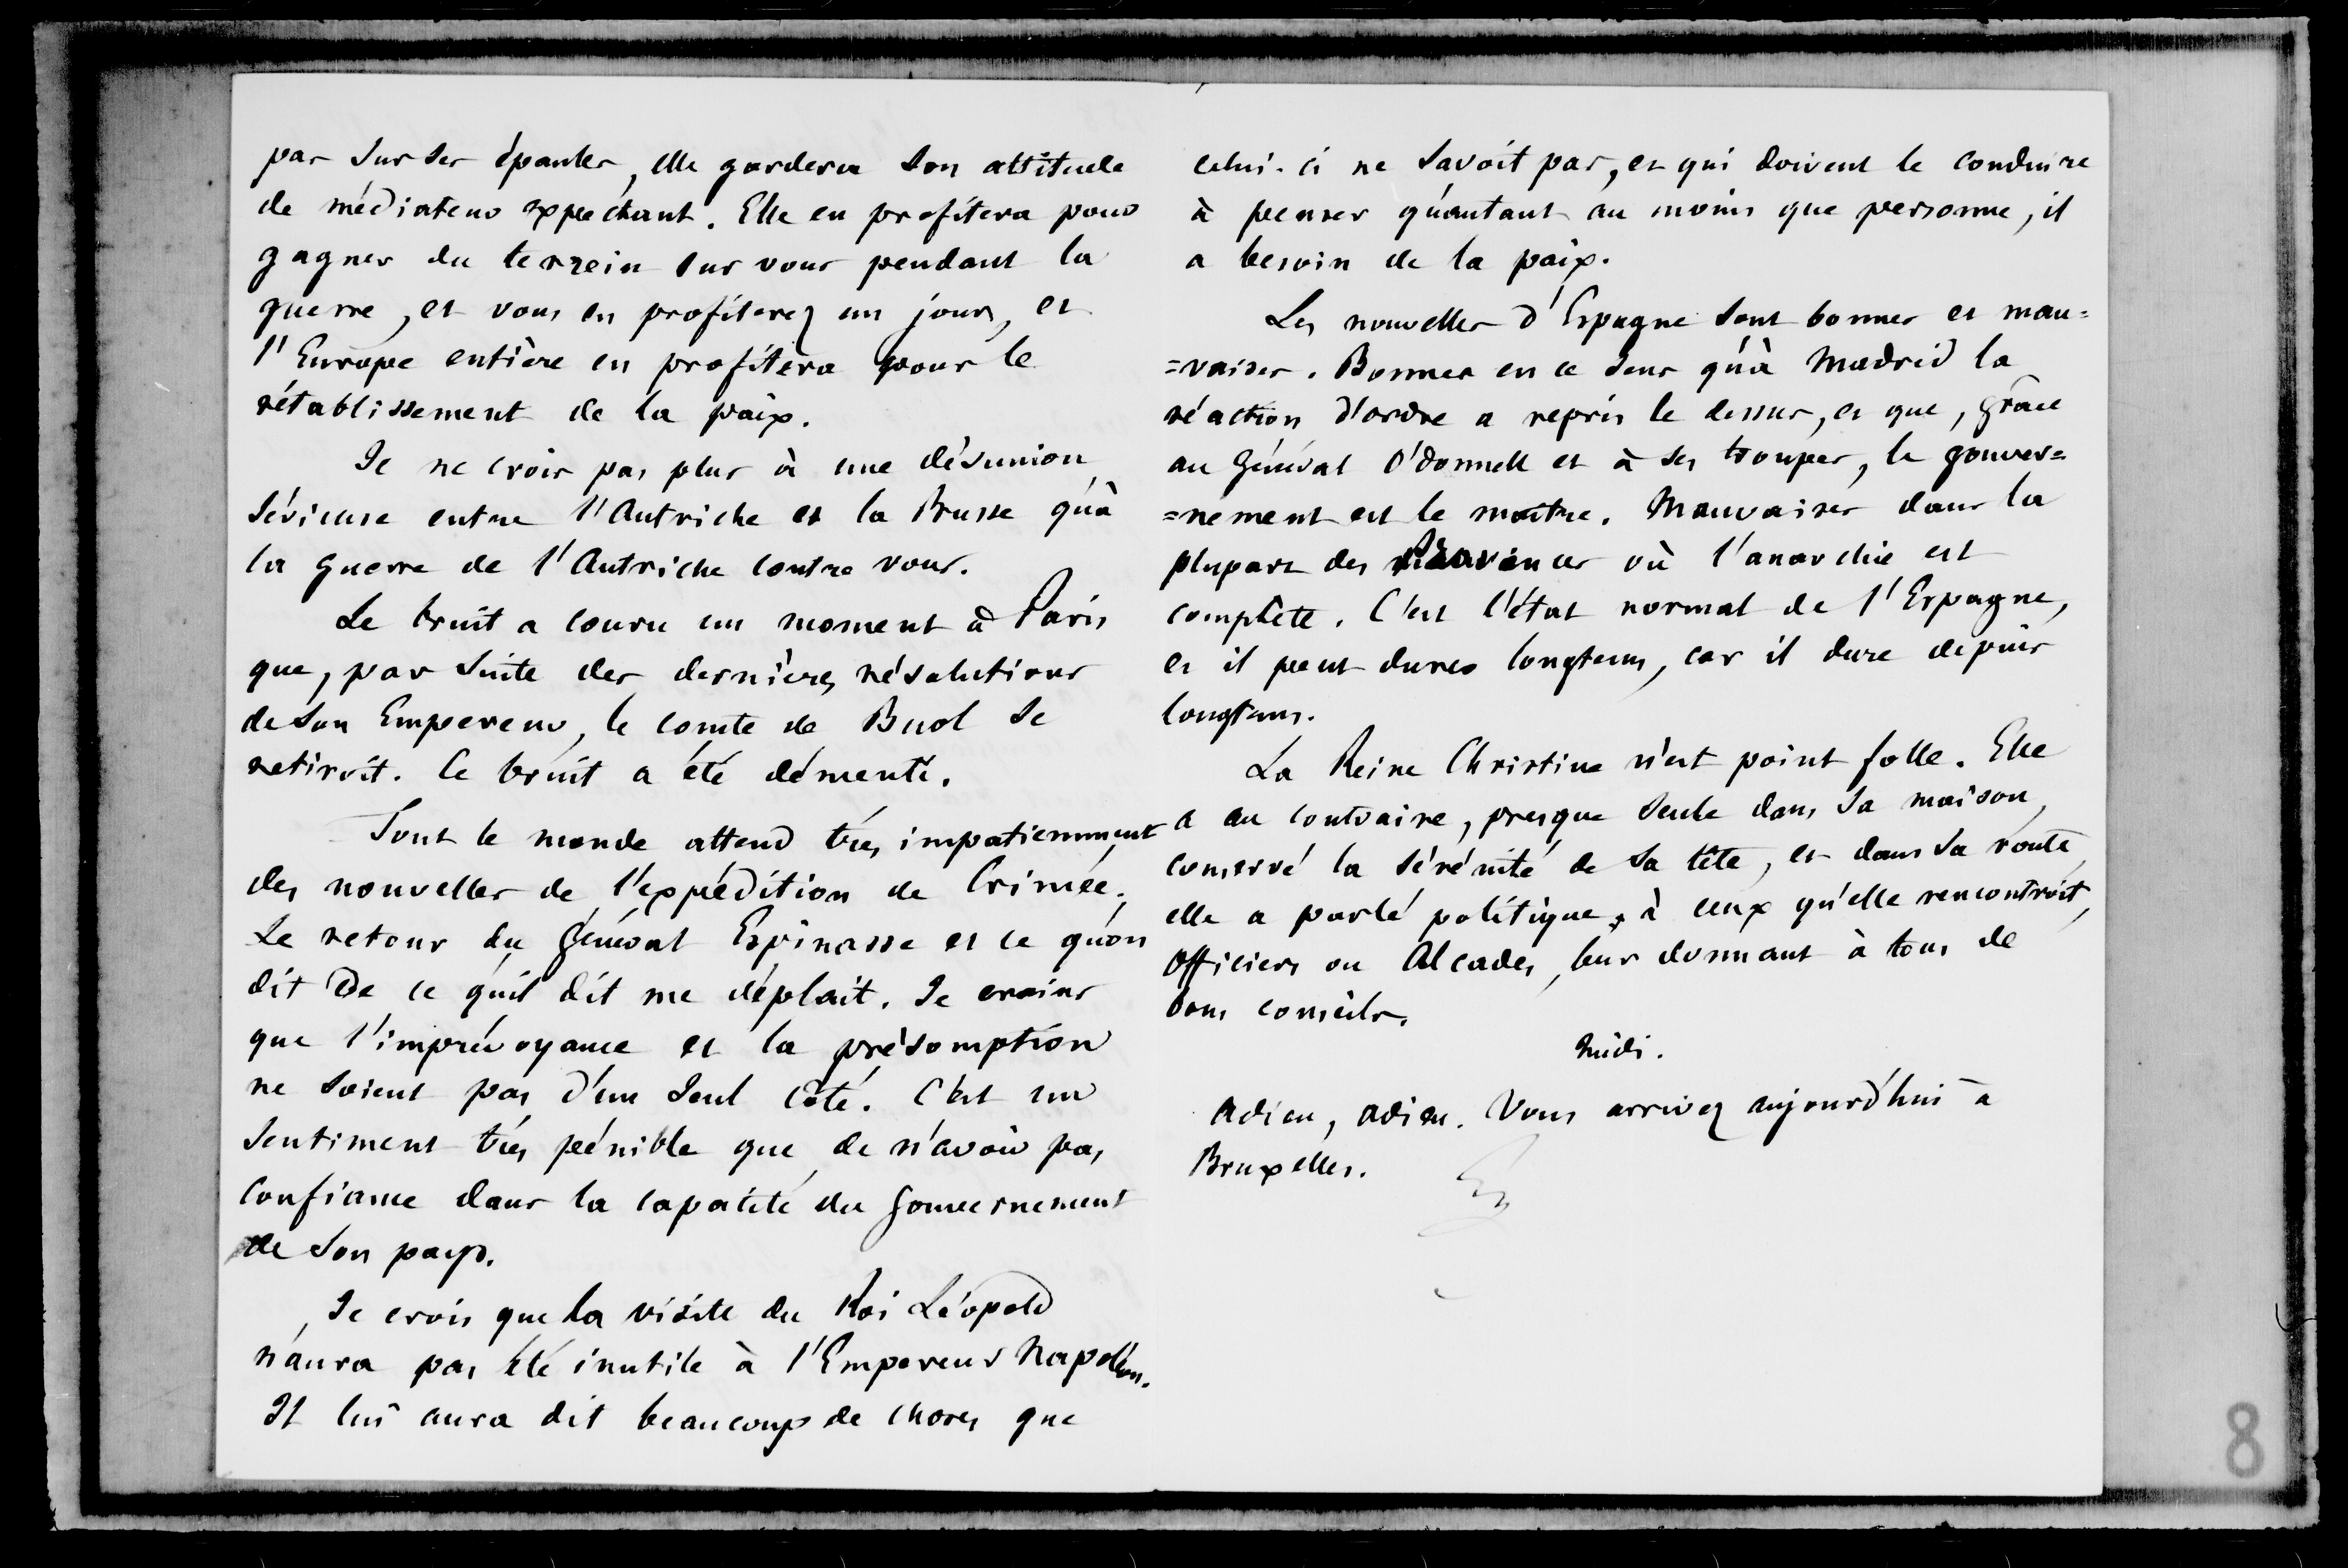 pas sur ses épaules, elle gardera son attitude
de médiateur expectant. Elle en profitera pour
gagner du terrein sur vous pendant la
guerre, et vous en profiterez un jour, et
l'Europe entière en profitera pour le
rétablissement de la paix.
Je ne crois pas plus à une désunion
sérieuse entre l'Autriche et la Prusse qu'à
la guerre de l'Autriche contre vous.
Le bruit a couru un moment à Paris
que, par suite des dernières résolutions
de son Empereur, le comte de Buol se
retiroit. Ce bruit a été démenti.
Tout le monde attend très impatiemment
des nouvelles de l'expédition de Crimée.
Le retour du Général Espinasse et ce qu'on
dit de ce qu'il dit me déplait. Je crains
que l'imprévoyance et la présomption
ne soient pas d'un seul côté. C'est un
sentiment très pénible que de n'avoir pas
confiance dans la capacité du gouvernement
de son pays.
Je crois que la visite du Roi Léopold
n'aura pas été inutile à l'Empereur Napoléon.
Il lui aura dit beaucoup de choses que
celui-ci ne savoit pas, et qui doivent le conduire
à penser qu'autant au moins que personne, il
a besoin de la paix.
Les nouvelles d'Espagne sont bonnes et mau=
=vaises. Bonnes en ce sens qu'à Madrid la
réaction d'ordre a repris le dessus, et que, grâce
au Général O'donnell et à ses troupes, le gouver=
=nement est le maître. Mauvaises dans la
plupart des Provinces où l'anarchie est
complète. C'est l'état normal de l'Espagne,
et il peut durer longtems, car il dure depuis
longtems.
La Reine Christine n'est point folle. Elle
a au contraire, presque seule dans sa maison,
conservé la sérénité de sa tête, et dans sa route,
elle a parlé politique à ceux qu'elle rencontroit,
Officiers ou Alcades, leur donnant à tous de
bons conseils.
Midi.
Adieu, adieu. Vous arrivez aujourd'hui à
Bruxelles.
8